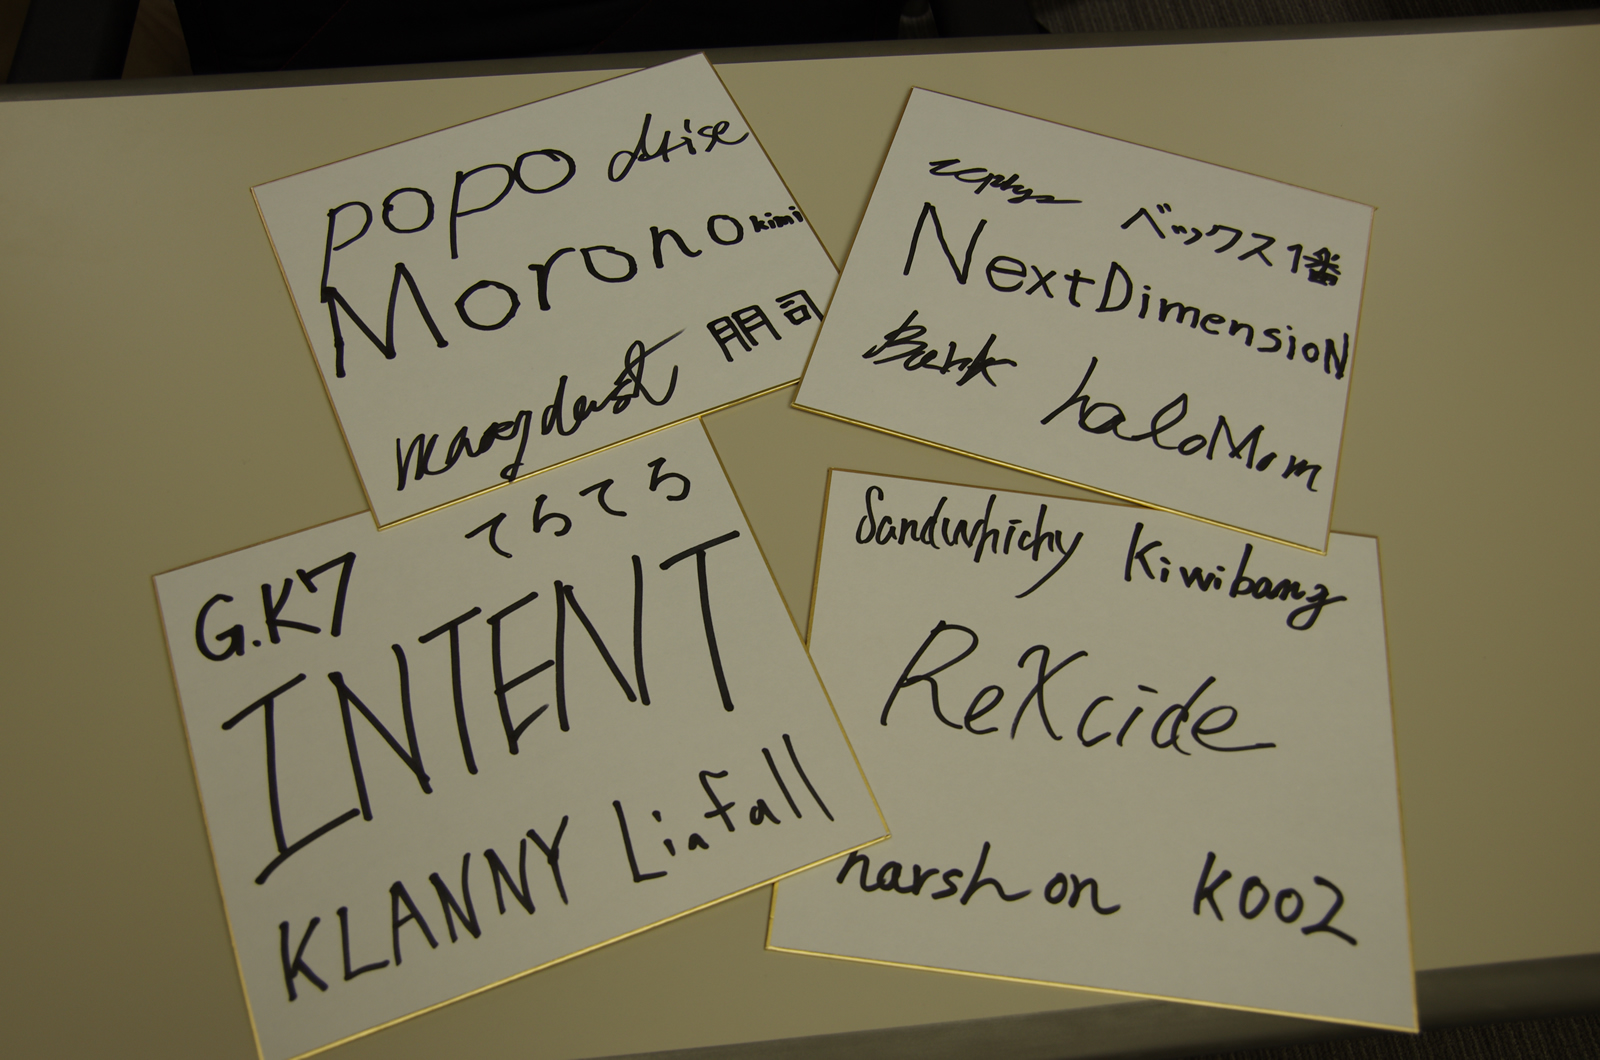 popo
Morono kimi
朋司
zephyr ベックス1番
NextDimensioN
Bank haloMom
G.K7 てらてろ
INTENT
KLANNY Linfall
Sandwhichy Kiwibang
ReXcide
narshon K002